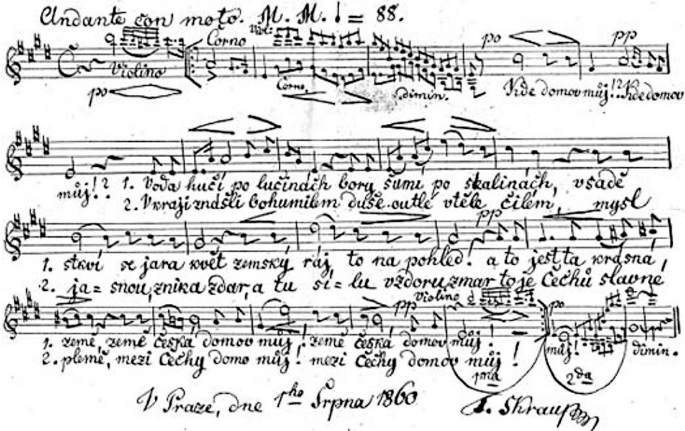 Andante con moto. M. M. ♩ = 88.
Viol: Corno Viol:
Violino Corno dimin. Kde domov můj!? Kde domov
po po pp
můj!? 1. Voda hučí po lučinách bory šumí po skalinách, v sadě
2. V kraji znášli bohumilém duše outlé v těle čilém, mysl
pp
1. stkví se jara květ zemský ráj to na pohled. a to jest ta krásná,
2. ja=snou, znika zdar, a tu sí=lu vzdoru zmar to je Čechů slavné
pp Violino po
1. země, země česká, domov můj! země česká domov můj! můj! dimin.
2. plémě, mezi Čechy domo můj! mezi Čechy domov můj!
1ma 2da
V Praze, dne 1ho Srpna 1860 F. Skraup